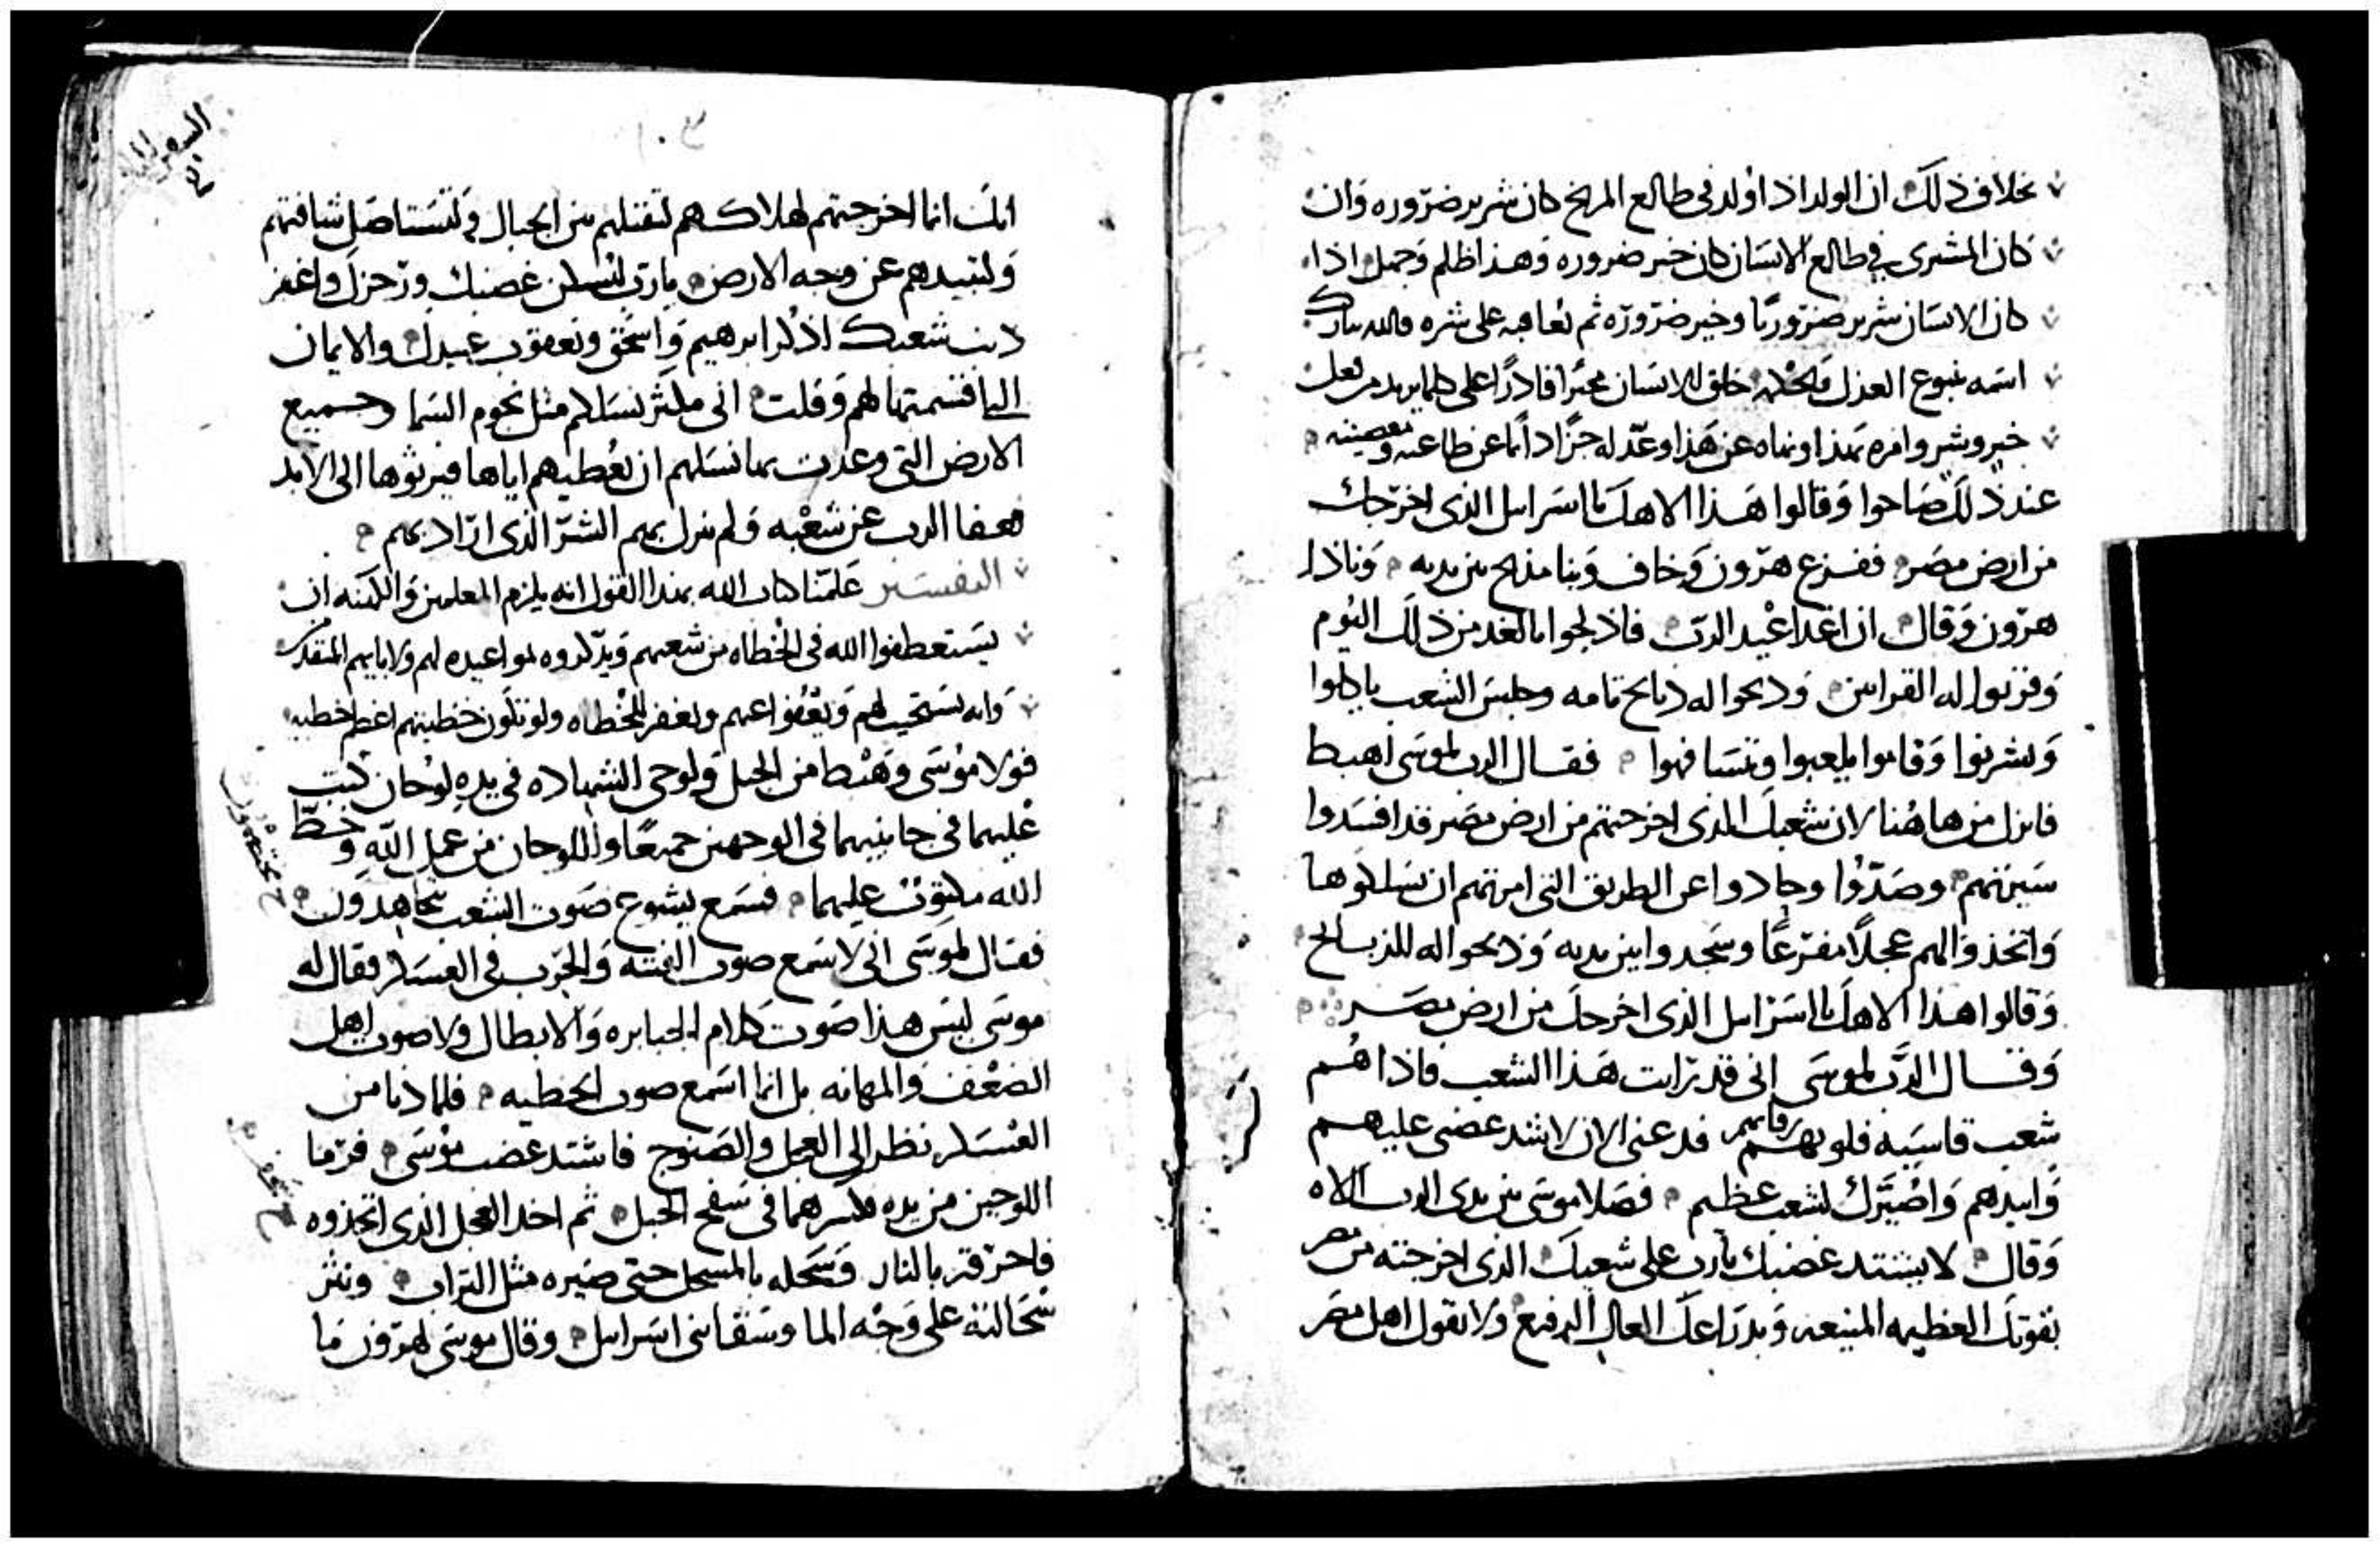 بخلاف ذلك ان الولد اذا اولد في طالع المريخ كان شرير ضروره وان
كان المشترى في طالع الانسان كان خير ضروره وهذا ظلم وجهل اذا
كان الانسان شرير ضروريًا وخير ضروره ثم يعاقبه على شره والله تبارك
اسمه ينبوع العدل خلق الانسان مخيرا قادرًا على كلما يريد من فعل
خير وشر وامره بهذا ونهاه عن هذا وعد له جزًا دايما عن طاعته ومعصيته
عند ذلك صاحوا وقالوا هذا الاهك يا اسرايل الذى اخرجك
من ارض مصر ففزع هرون وخاف وبنا مذبح بين يديه ونادا
هرون وقال ان غدا عيد الرب فادلجوا بالغد من ذلك اليوم
وقربوا له القرابين ودبحوا له دبايح تامه وجلس الشعب ياكلوا
ويشربوا وقاموا يلعبوا وتسافهوا فقال الرب لموسى اهبط
فانزل من هاهنا لان شعبك الذى اخرجتهم من ارض مصر قد افسدوا
سيرتهم وصدّوا وحادوا عن الطريق التى امرتهم ان يسلكوها
واتخذوا لهم عجلًا مفرغًا وسجدوا بين يديه وذبحوا له الذبايح
وقالوا هذا الاهك يا اسرايل الذى اخرجك من ارض مصر
وقال الرب لموسى انى قد رايت هذا الشعب فاذا هم
شعب قاسيه قلوبهم رقابهم فدعنى الان لاشتد غضبى عليهم
وابيدهم واصيّرك لشعب عظيم فصلا موسى بين يدى الرب الاه
وقال لا يشتد غضبك يارب على شعبك الذى اخرجته من مصر
بقوتك العظيمه المنيعه وبدراعك العال الرفيع ولا يقول اهل مصر
السفر الثانى
١٠٣
انك انما اخرجتهم لهلاكهم لتقتلهم بين الجبال ولتستاصل شافتهم
ولتبيدهم عن وجه الارض يارب ليسكن غضبك وتزحزك واغفر
دنب شعبك اذكر ابرهيم واسحق ويعقوب عبيدك والايمان
التى اقسمتها لهم وقلت انى مكثر نسلكم مثل نجوم السما وجميع
الارض التى وعدت بها نسلهم ان تعطيهم اياها فيرثوها الى الابد
فعفا الرب عن شعبه ولم ينزل بهم الشرّ الذى اراد بهم
التفسير علمنا كتاب الله بهدا القول انه يلزم المعلمين والكهنه ان
يستعطفوا الله فى الخطاه من شعبهم ويذكروه لمواعيده لهم ولابايهم
وانه يستجيب لهم ويعفوا عنهم ويغفر للخطاه ولو تكون خطيتهم اعظم خطيه
فولا موسى وهبط من الجبل ولوحى الشهاده فى يده لوحان كتب
عليهما فى جانبيهما فى الوجهين جميعًا واللوحان من عمل الله وخط
الله مكتوب عليهما فسمع يشوع صوت الشعب يجاهدون
فقال لموسى انى لاسمع صوت الفتنه والحرب فى العسكر فقال له
موسى ليس هذا صوت كلام الجبابره والابطال ولا صوت اهل
الضعف والمهانه بل انما اسمع صوت الخطيه فلما دنا من
العسكر نظر الى العجل والصنوج فاشتد غضب موسى فرما
اللوحين من يده فكسرهما فى سفح الجبل ثم اخد العجل الذى اتخذوه
فاحرقه بالنار وسحله بالمسحل حتى صيره مثل التراب ونثر
سحالته على وجه الما وسقا بنى اسرايل وقال موسى لهرون ما